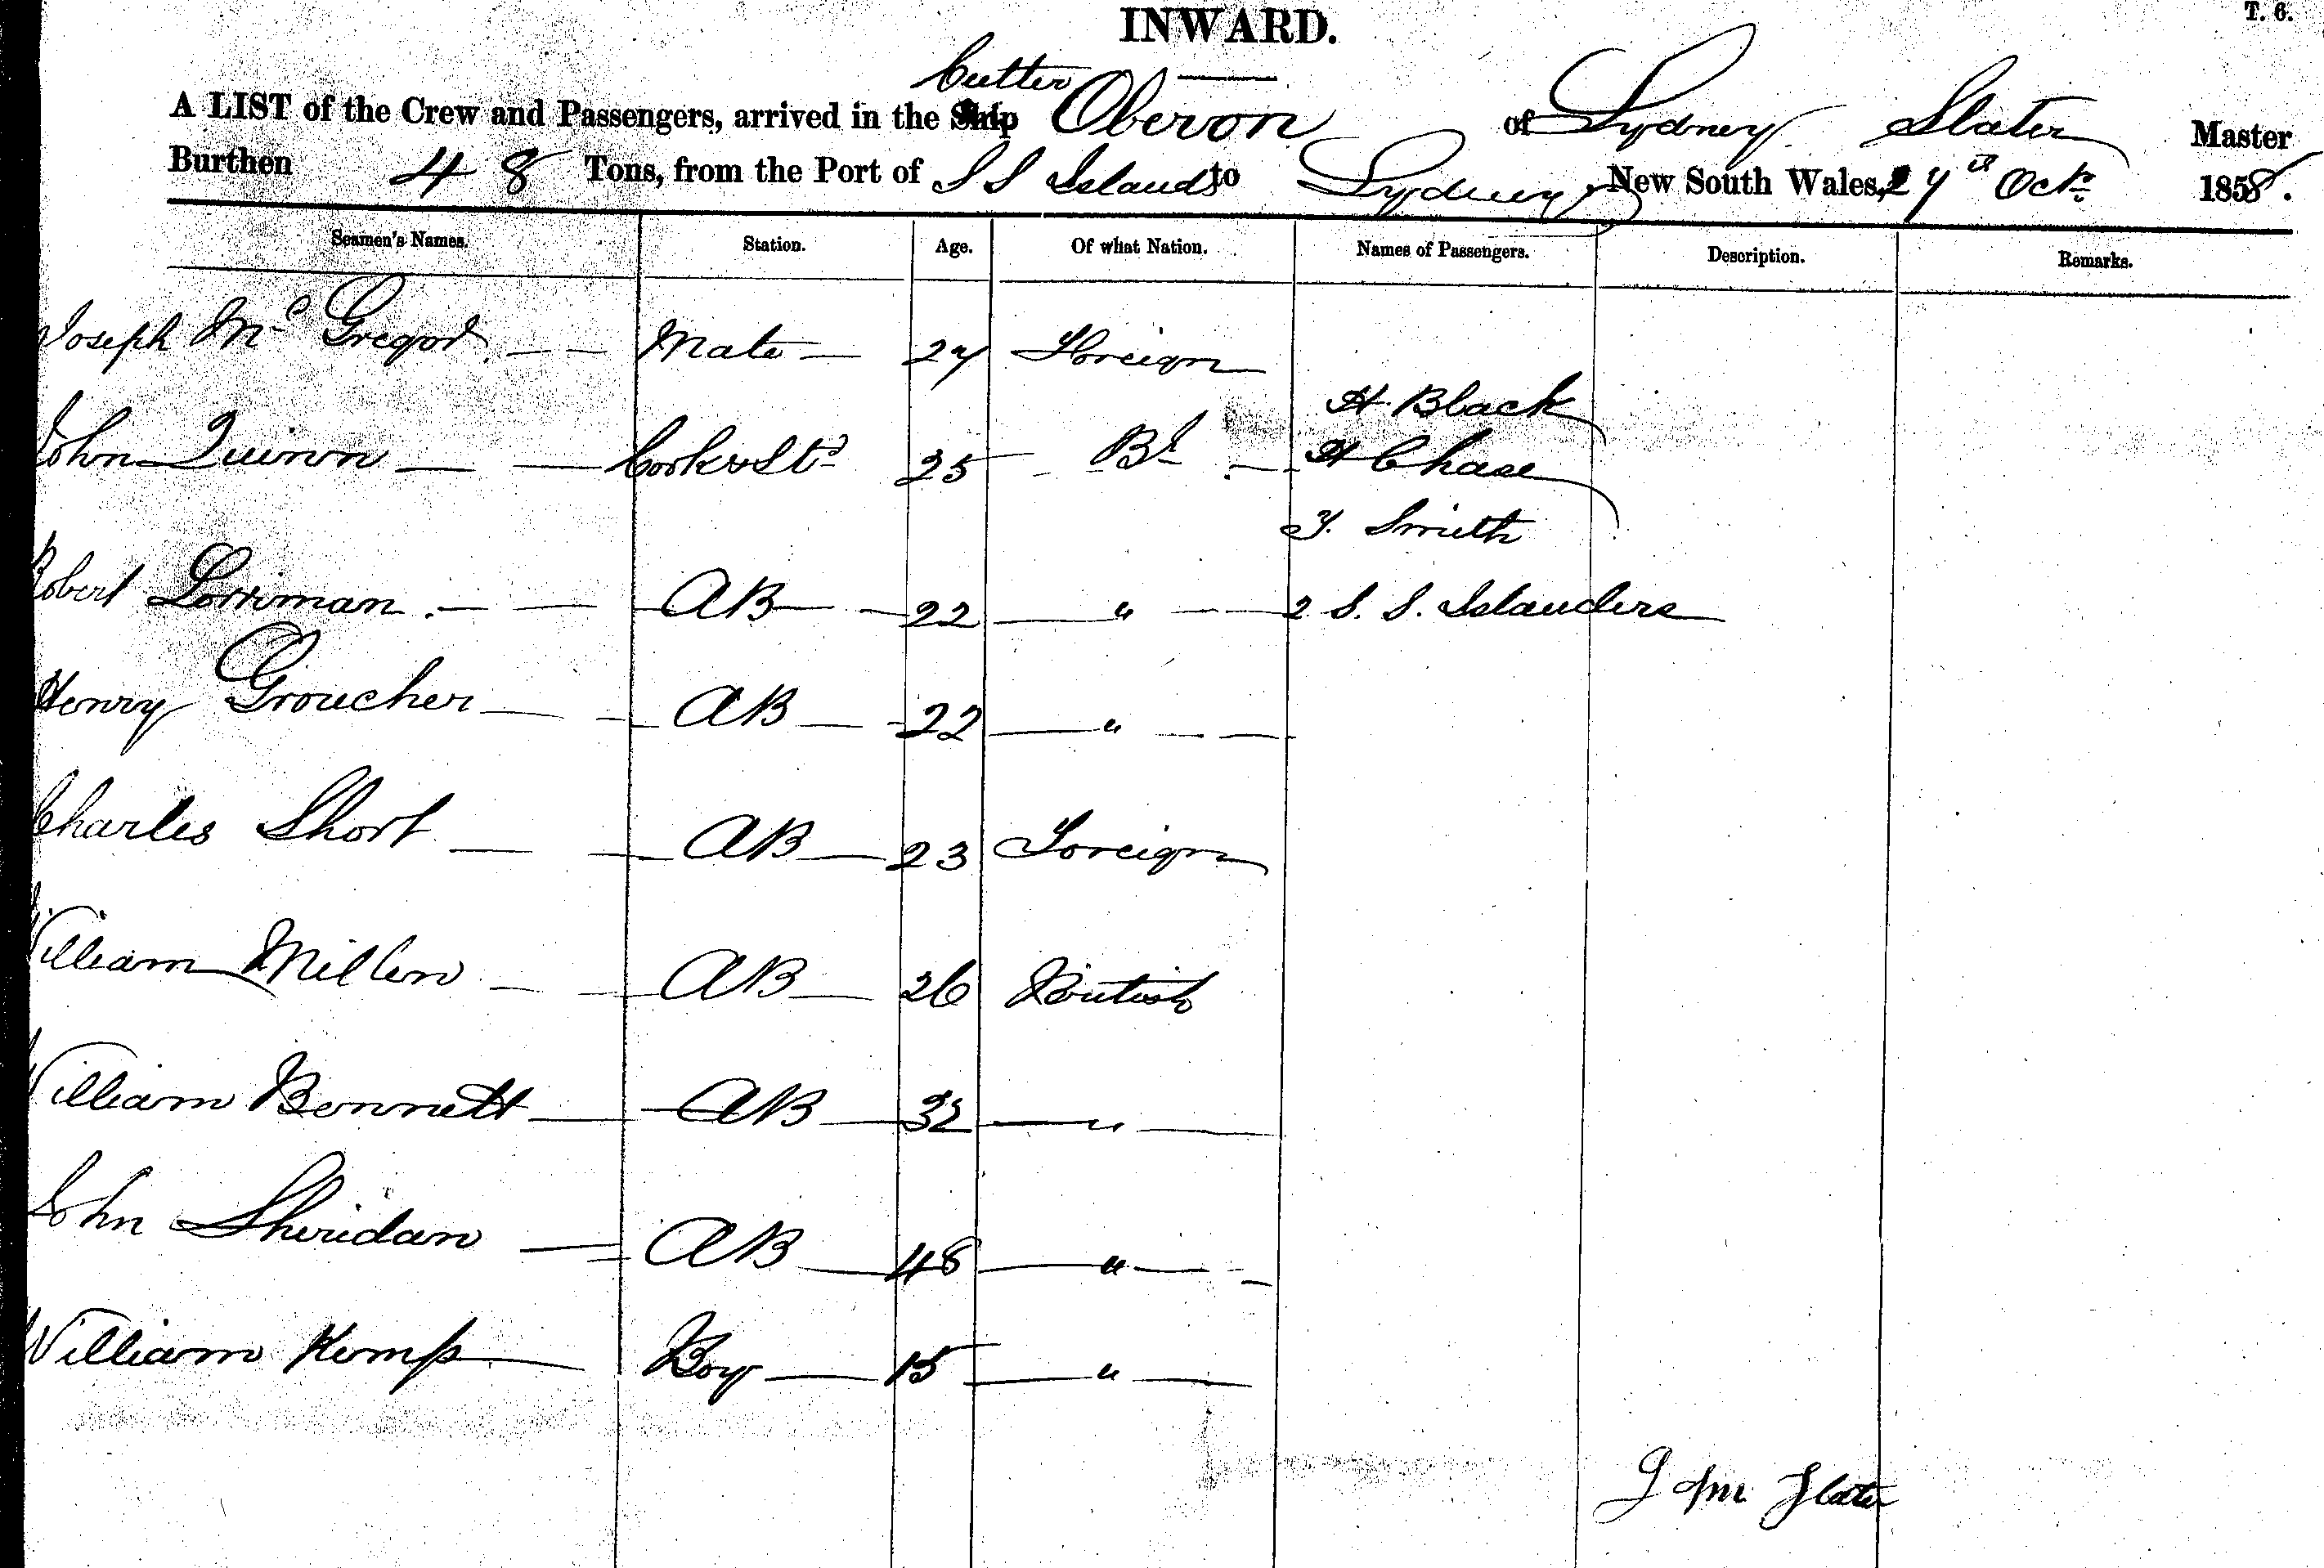 INWARD.
T. 6.
Cutter
A LIST of the Crew and Passengers, arrived in the Ship Oberon of Sydney Slater Master
Burthen 48 Tons, from the Port of S S Islands to Sydney New South Wales, 27th Octr 1858.
Seamen's Names. Station. Age. Of what Nation. Names of Passengers. Description. Remarks.
Joseph McGregor Mate 27 Foreign
H. Black
John Quinn Cook & Std 25 Bt H Chase
T. Smith
Robert Lorriman AB 22 " 2 S. S. Islanders
Henry Groucher AB 22 "
Charles Short AB 23 Foreign
William Miller AB 26 British
William Bennett AB 32 "
John Sheridan AB 48 "
William Kemp Boy 15 "
Slater